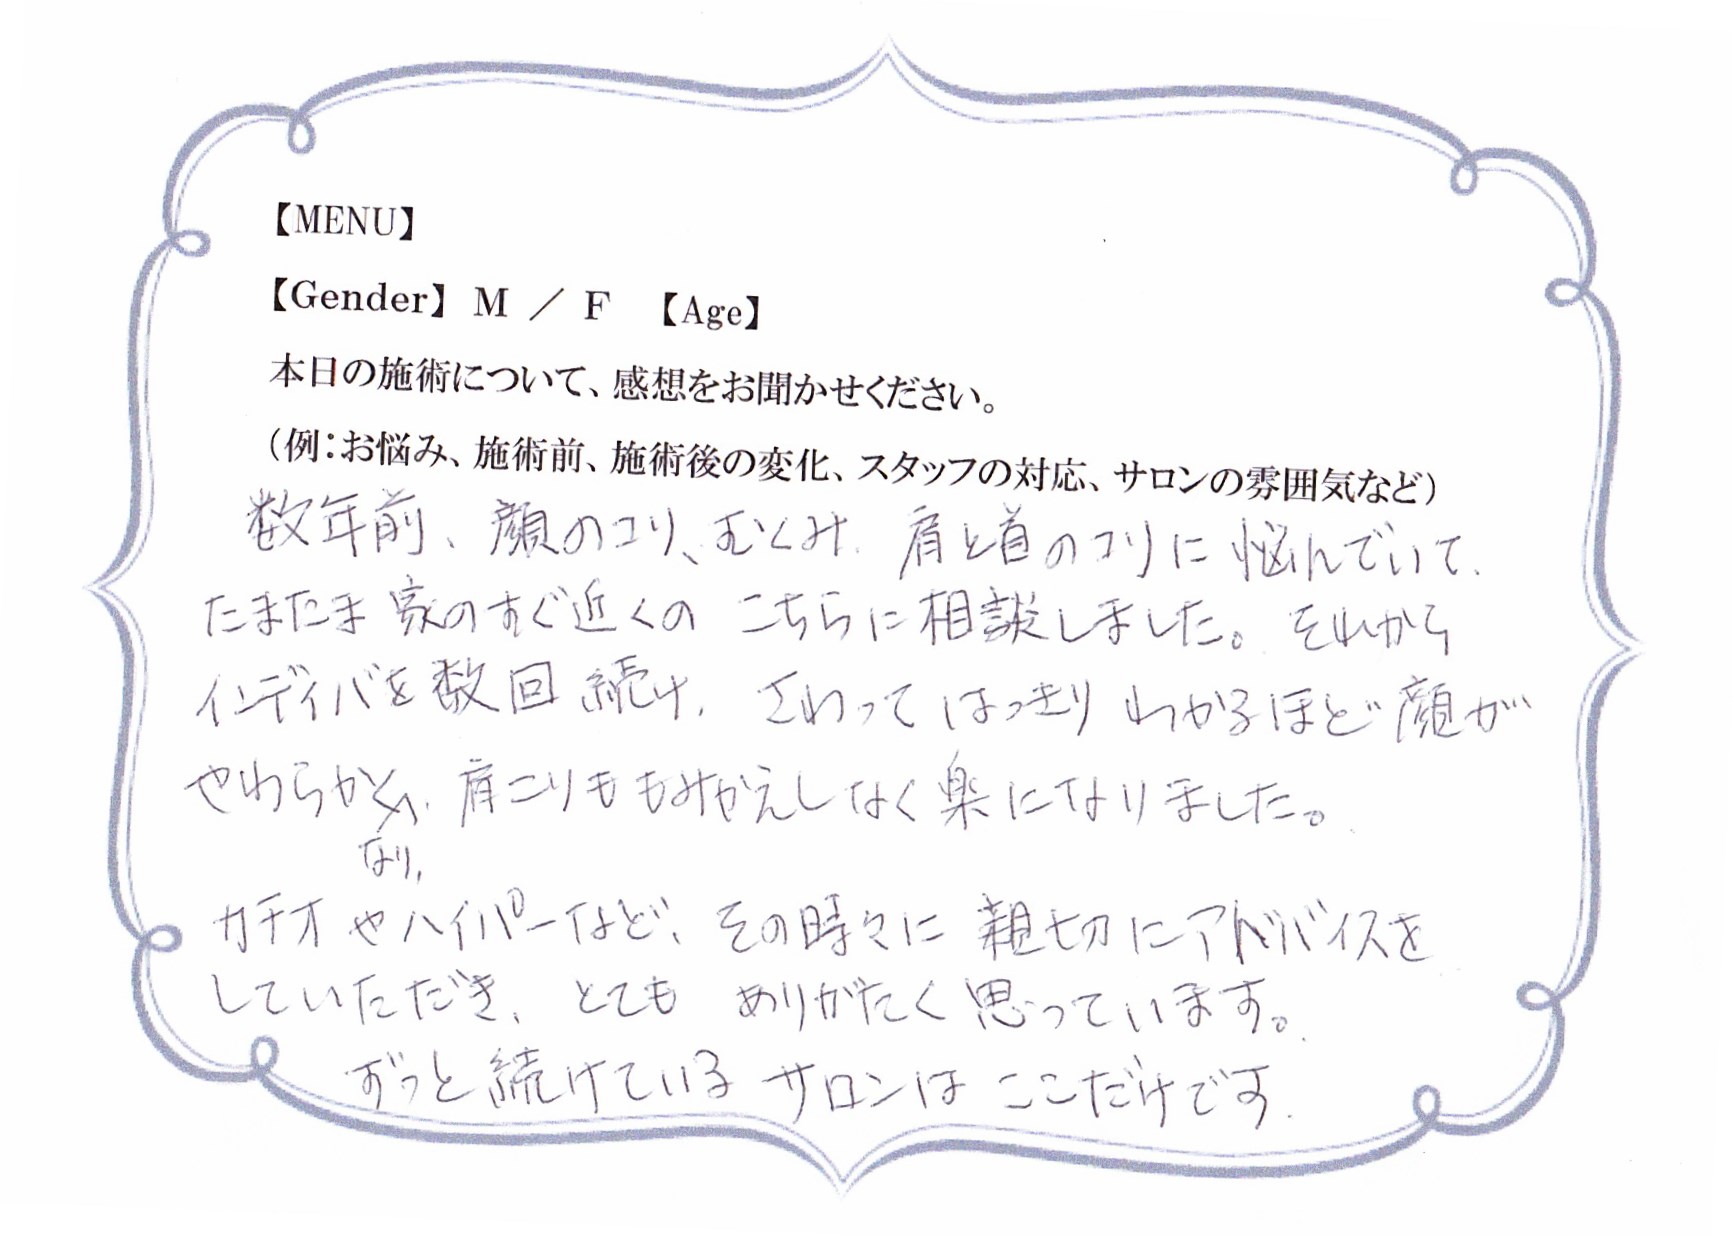 【MENU】
【Gender】 M ／ F 【Age】
本日の施術について、感想をお聞かせください。
（例：お悩み、施術前、施術後の変化、スタッフの対応、サロンの雰囲気など）
数年前、顔のコリ、むくみ、肩と首のコリに悩んでいて、
たまたま家のすぐ近くのこちらに相談しました。それから
インディバを数回続け、さわってはっきりわかるほど顔が
やわらかく、肩こりももみかえしなく楽になりました。
なり、
カチオやハイパーなど、その時々に親切にアドバイスを
していただき、とてもありがたく思っています。
ずっと続けているサロンはここだけです。